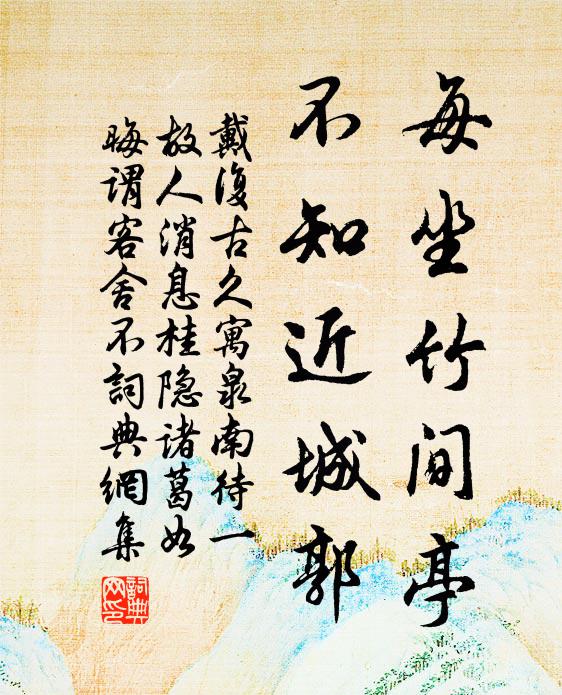 每坐竹间亭
不知近城郭
戴復古久寓泉南待一
故人消息桂隐诸葛如
晦谓客舍不詞典網集
詞典